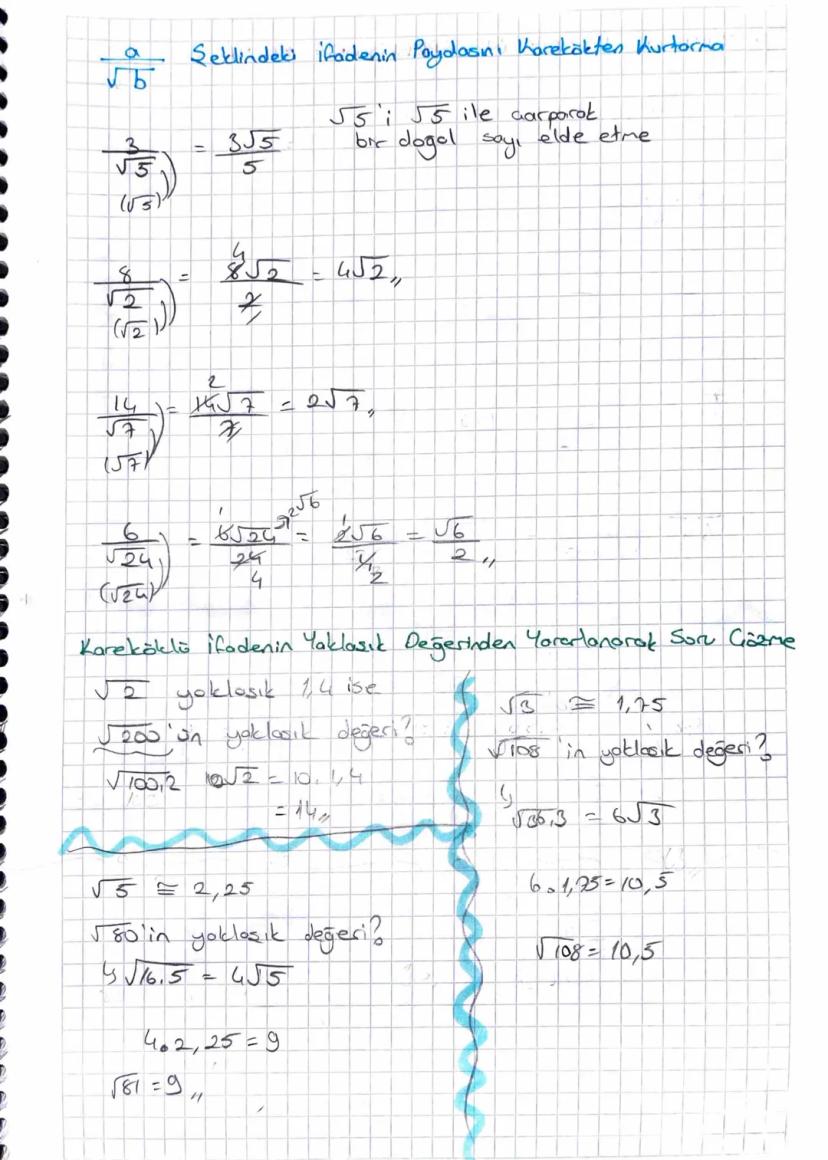 a/√b Şeklindeki ifadenin Paydasını Karekökten Kurtarma
√5'i √5 ile çarparak
bir doğal sayı elde etme
3/√5 = 3√5/5
(√5)
8/√2 = 8√2/2 = 4√2,,
4
(√2)
14/√7 = 14√7/7 = 2√7,,
2
(√7)
6/√24 = 6√24/24 = 2√6/4 = √6/2,,
1 2√6 1
4 2
(√24)
Kareköklü ifadenin Yaklaşık Değerinden Yararlanarak Soru Çözme
√2 yaklaşık 1,4 ise
√200'ün yaklaşık değeri?
√100.2 10√2 = 10.1,4
= 14,,
√3 ≅ 1,75
√108'in yaklaşık değeri?
√36.3 = 6√3
6.1,75=10,5
√108 = 10,5
√5 ≅ 2,25
√80'in yaklaşık değeri?
√16.5 = 4√5
4.2,25 = 9
√81 = 9,,